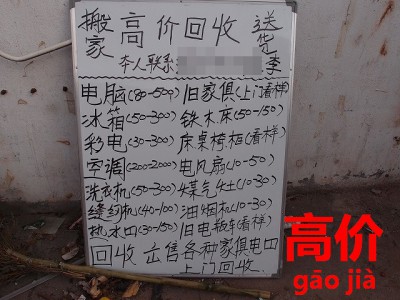 搬家 高价回收 送货
本人联系 李
电脑(80-500) 旧家俱(上门看样)
冰箱(50-300) 铁木床(50-150)
彩电(30-300) 床桌椅柜(看样)
空调(200-2000) 电风扇(10-50)
洗衣机(50-300) 煤气灶(10-30)
缝纫机(40-100) 油烟机(10-30)
热水口(30-150) 旧电瓶车(看样)
回收 出售各种家俱电口
上门回收
高价
gāo jià